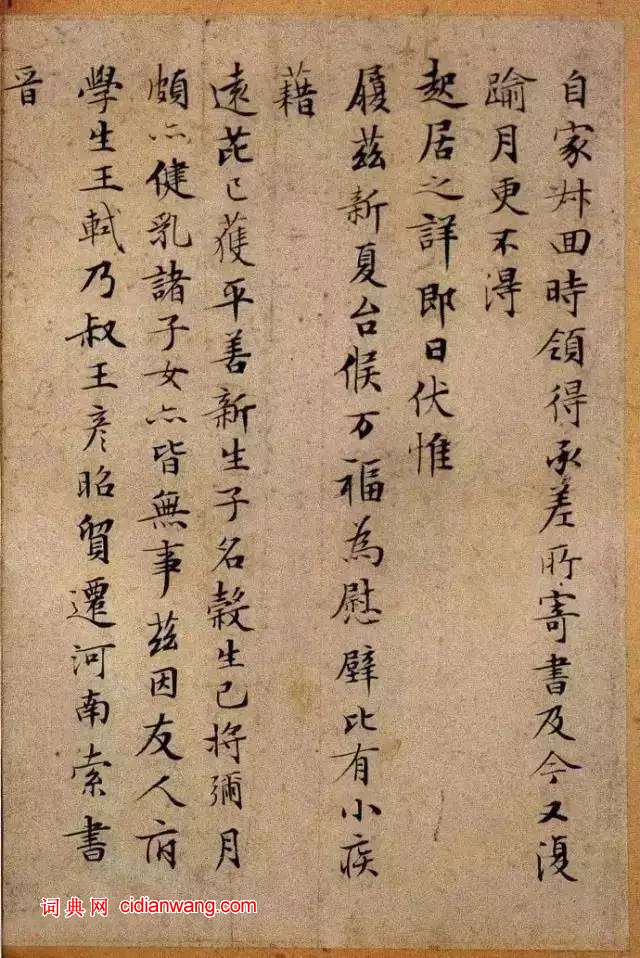 自家回時領得承差所寄書及今又復
踰月更不得
起居之詳即日伏惟
履茲新夏台候万福為慰壁比有小疾
藉
遠芘已獲平善新生子名穀生已將彌月
頗亦健乳諸子女亦皆無事茲因友人府
學生王軾乃叔王彦昭貿遷河南索書
晉
词典网 cidianwang.com